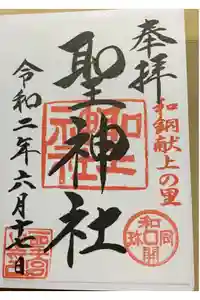 奉拝
和銅献上の里
聖神社
令和二年六月十七日
和同開珎